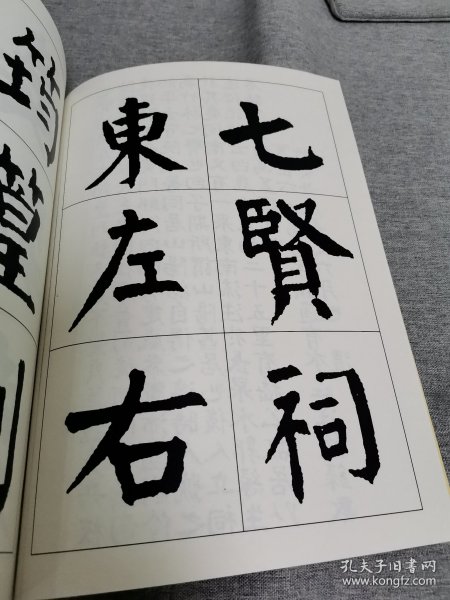 七賢祠
東左右
筠篁
列
孔夫子旧书网
www.kongfz.com